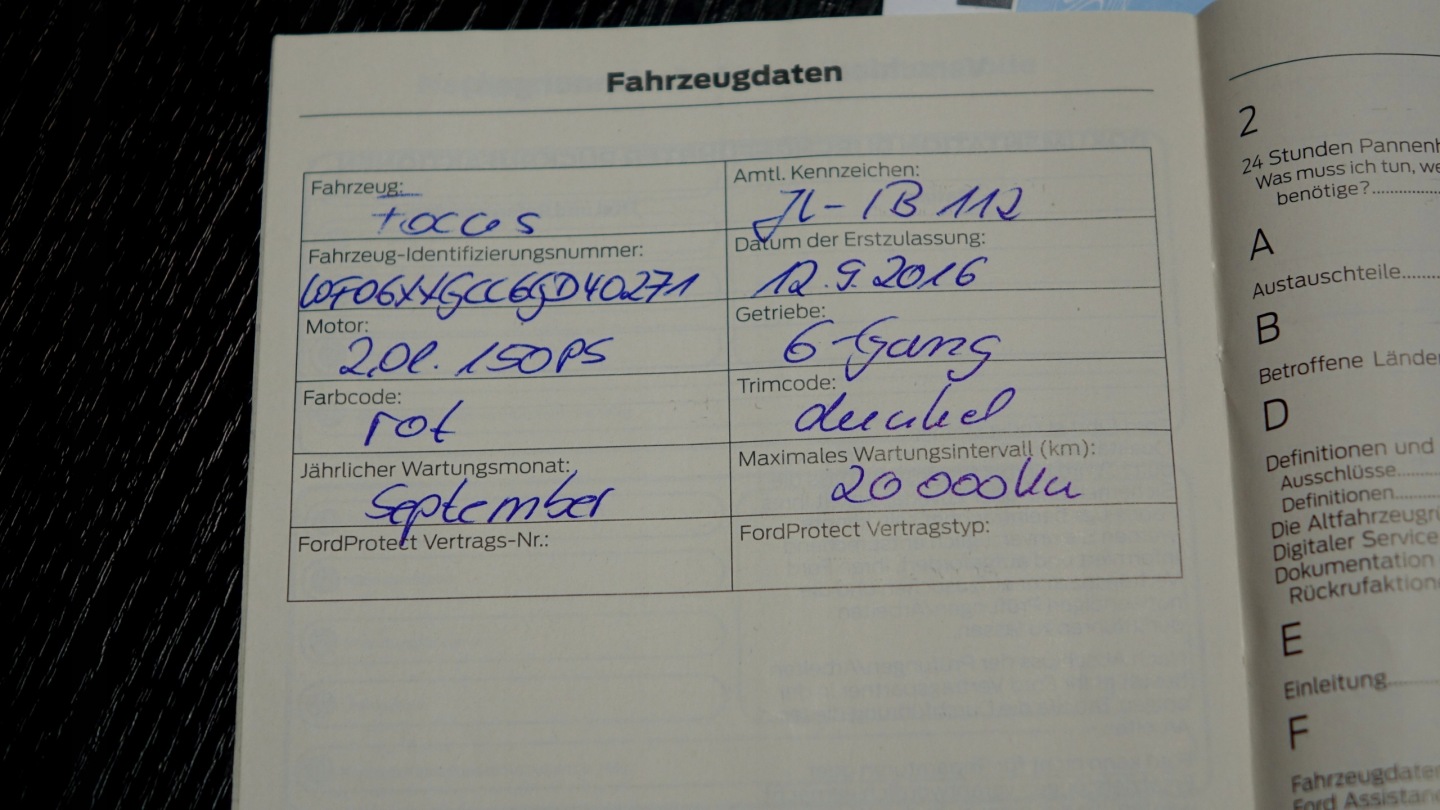 Fahrzeugdaten
Fahrzeug:
Focus
Amtl. Kennzeichen:
JL-IB 112
Fahrzeug-Identifizierungsnummer:
WF06XXGCC6GD40271
Datum der Erstzulassung:
12.9.2016
Motor:
2,0l. 150PS
Getriebe:
6-Gang
Farbcode:
rot
Trimcode:
dunkel
Jährlicher Wartungsmonat:
September
Maximales Wartungsintervall (km):
20 000km
FordProtect Vertrags-Nr.:
FordProtect Vertragstyp:
2
24 Stunden Pannenh
Was muss ich tun, we
benötige?
A
Austauschteile
B
Betroffene Länder
D
Definitionen und
Ausschlüsse
Definitionen
Die Altfahrzeugrü
Digitaler Service
Dokumentation
Rückrufaktione
E
Einleitung
F
Fahrzeugdaten
Ford Assistan